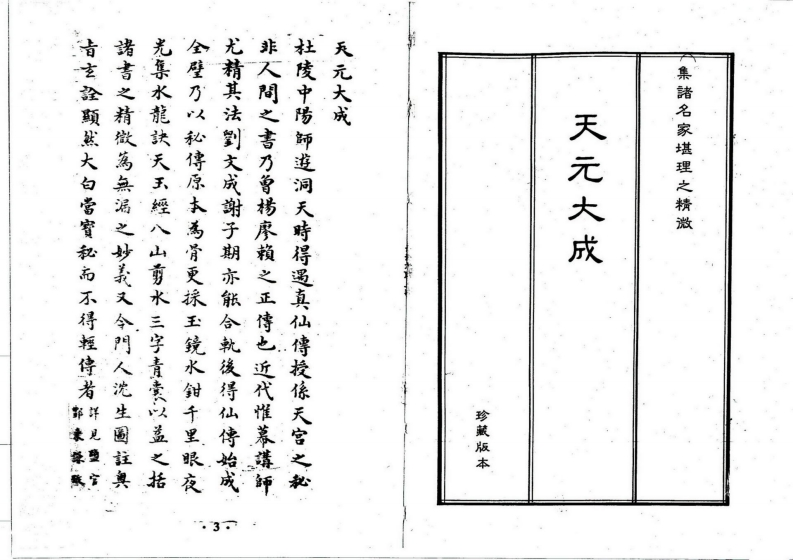 集諸名家堪理之精微
天元大成
珍藏版本
天元大成
杜陵中陽師遊洞天時得遇真仙傳授係天宮之秘
非人間之書乃曾楊廖賴之正傳也近代惟幕講師
尤精其法劉文成謝子期亦能合軌後得仙傳始成
全璧乃以秘傳原本為骨更採玉鏡水鉗千里眼夜
光集水龍訣天玉經八山剪水三字青囊以益之括
諸書之精微為無漏之妙義又令門人沈生圖註奥
旨玄詮顯然大白當寳秘而不得輕傳者
詳見鹽官
·3·